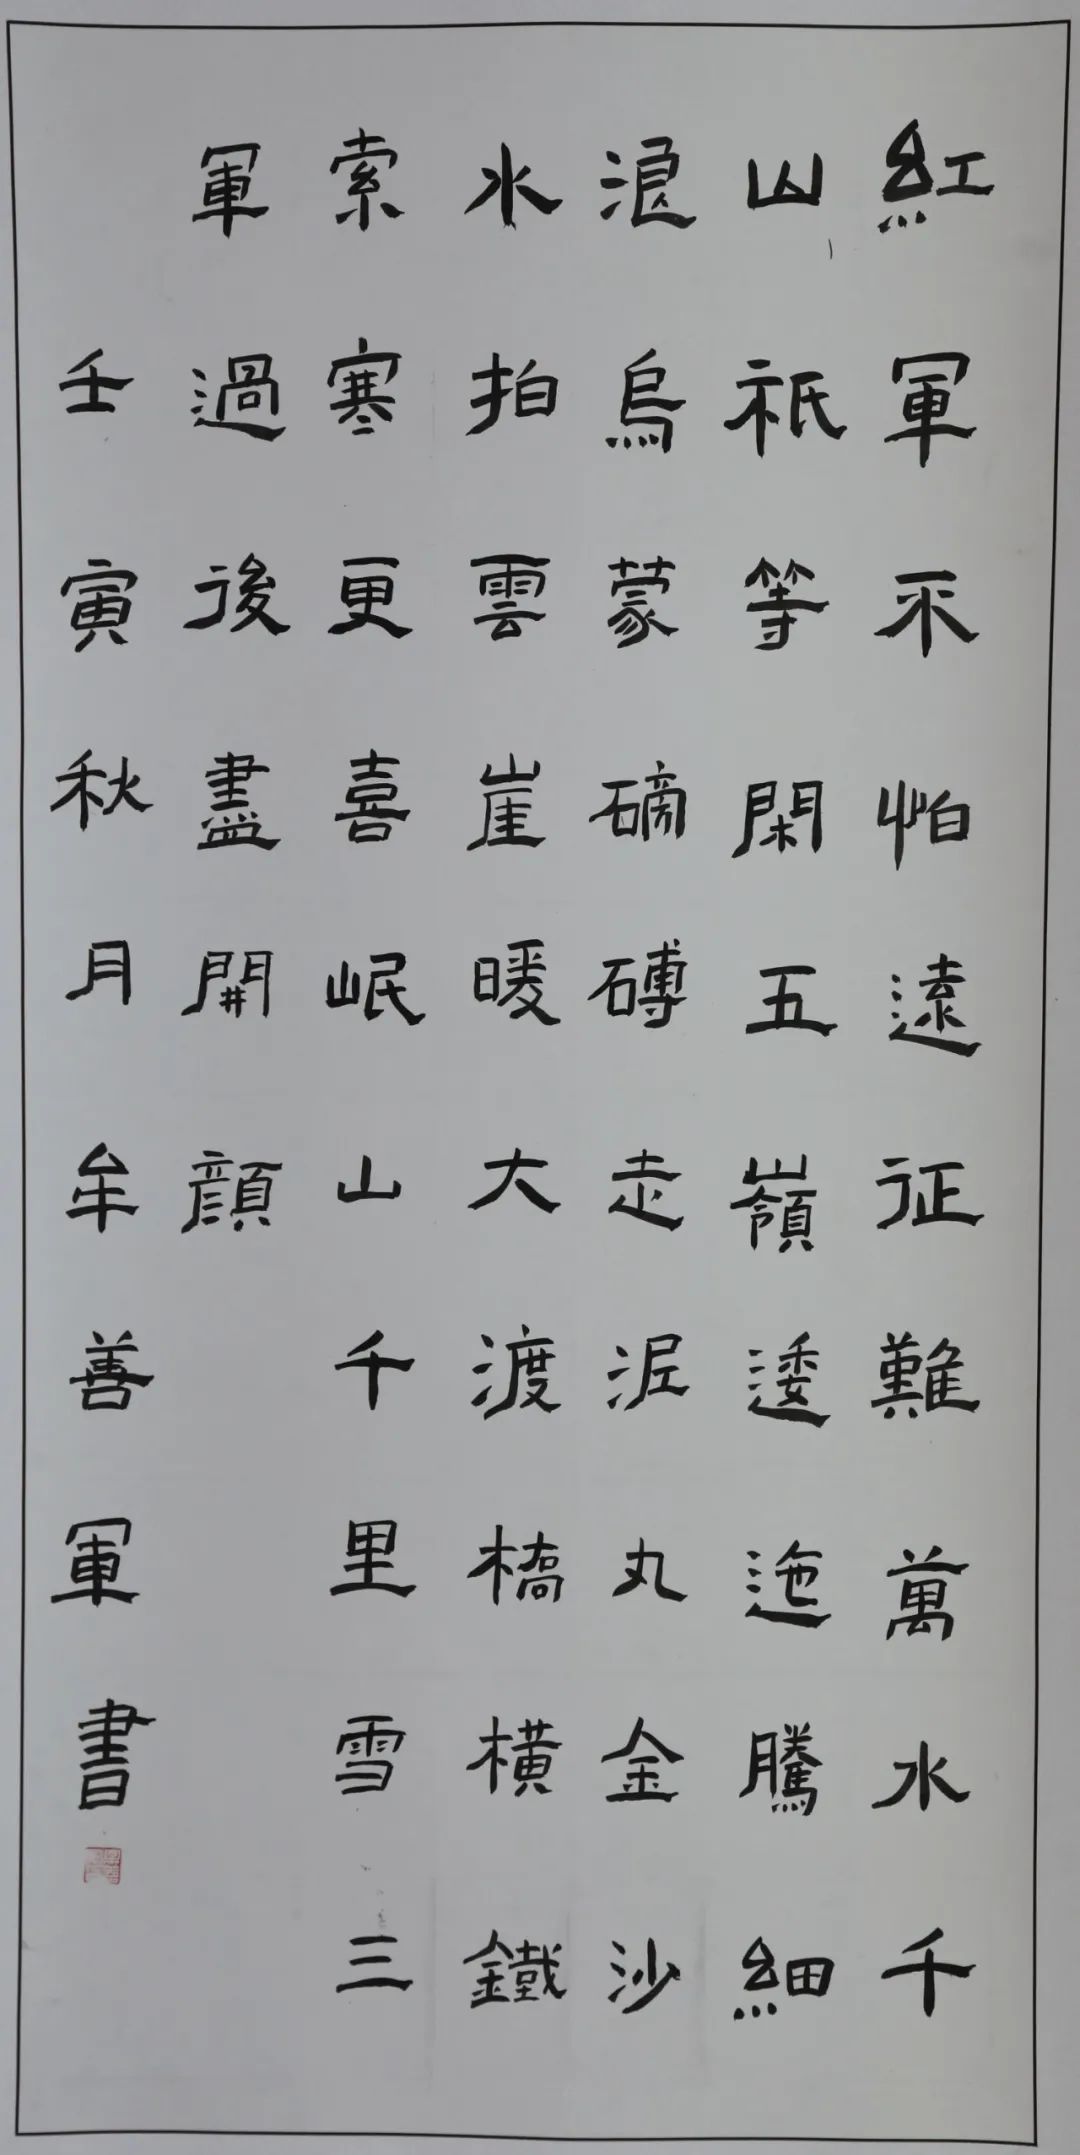 紅軍不怕遠征難萬水千
山祇等閑五嶺逶迤騰細
浪烏蒙磅磗走泥丸金沙
水拍雲崖暖大渡橋橫鐵
索寒更喜岷山千里雪三
軍過後盡開顏
壬寅秋月牟善軍書